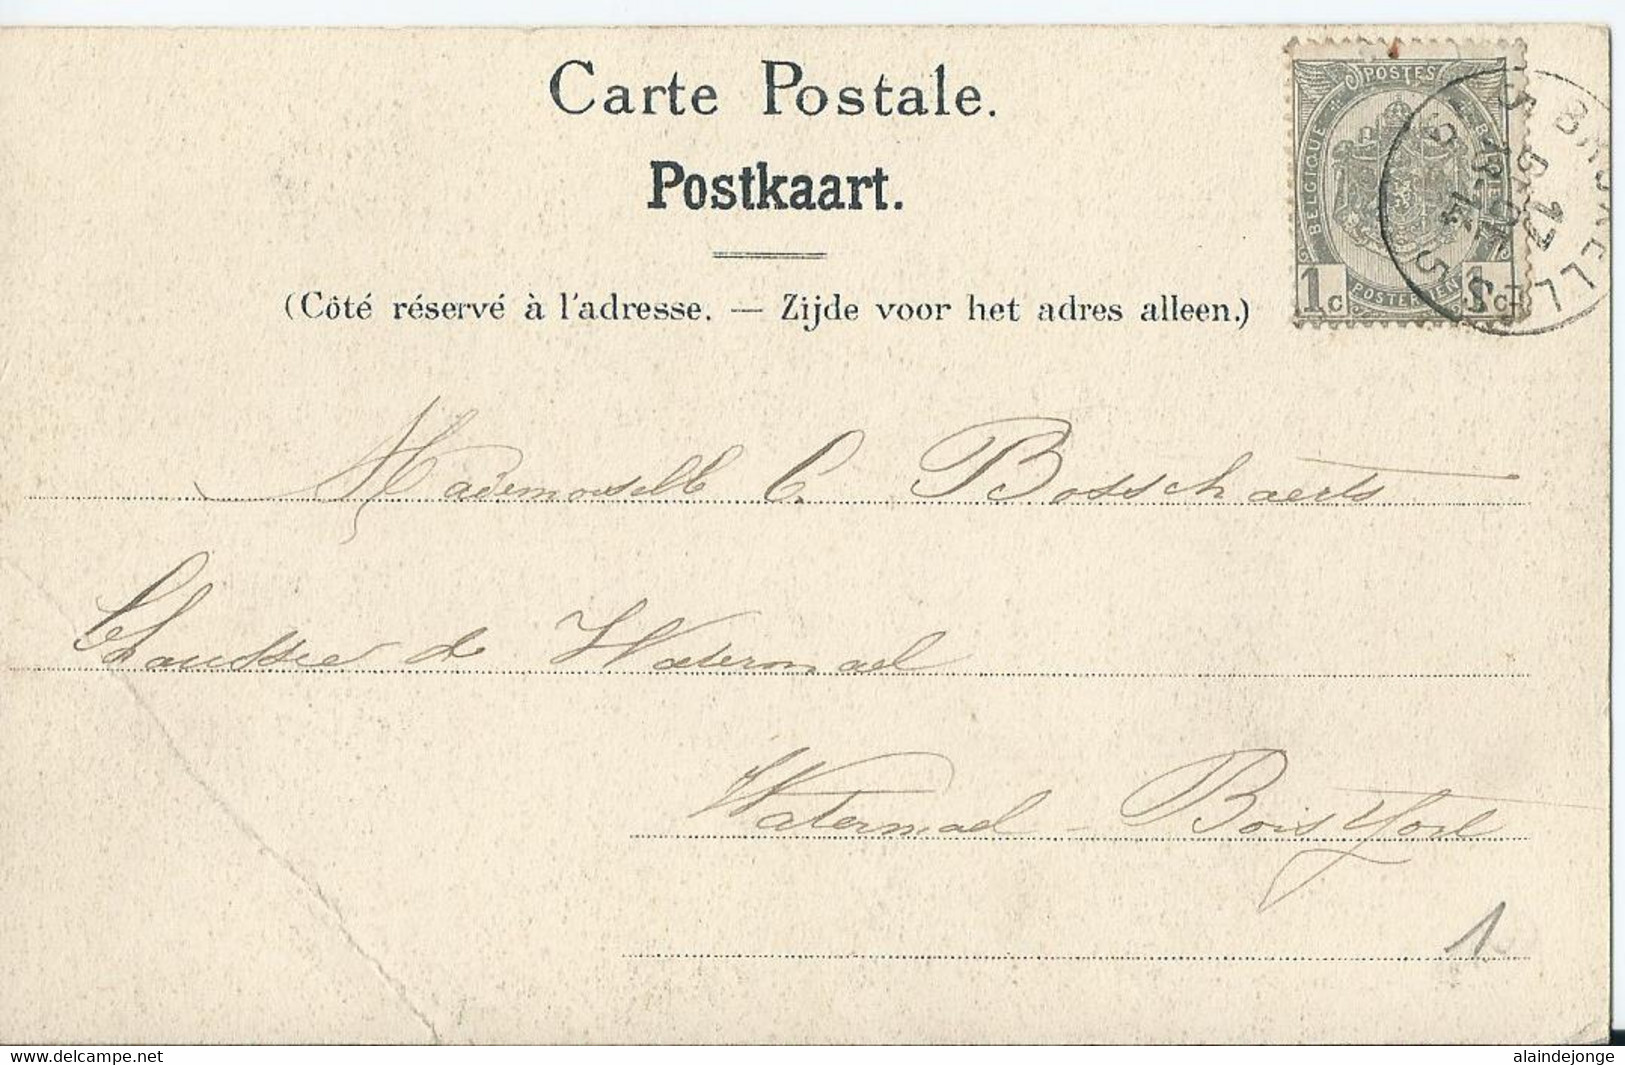 Carte Postale.
Postkaart.
(Côté réservé à l'adresse. — Zijde voor het adres alleen.)
POSTES
BELGIQUE
POSTERIJEN
1c 1c
BRUXELL
Mademoiselle C. Bosschaerts
Chaussée de Watermael
Watermael - Boisfort
1
delcampe.net
alaindejonge